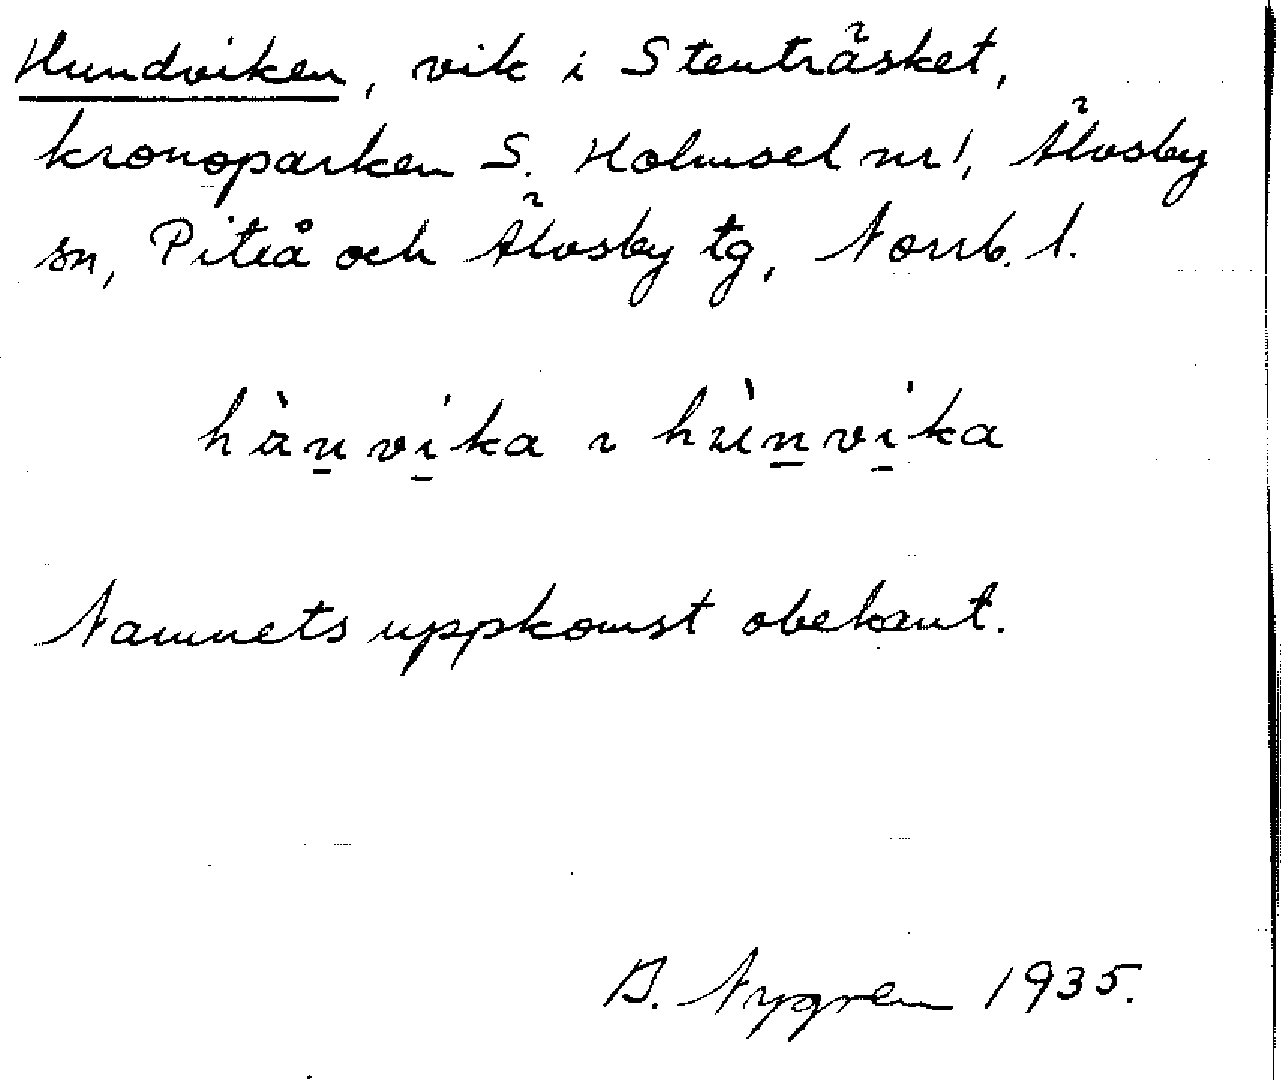 Hundviken, vik i Stenträsket,
kronoparken S. Holmsel nr 1, Älvsby
sn, Piteå och Älvsby tg, Norrb. l.
hùnvika
Namnets uppkomst obekant.
B. Nygren 1935.